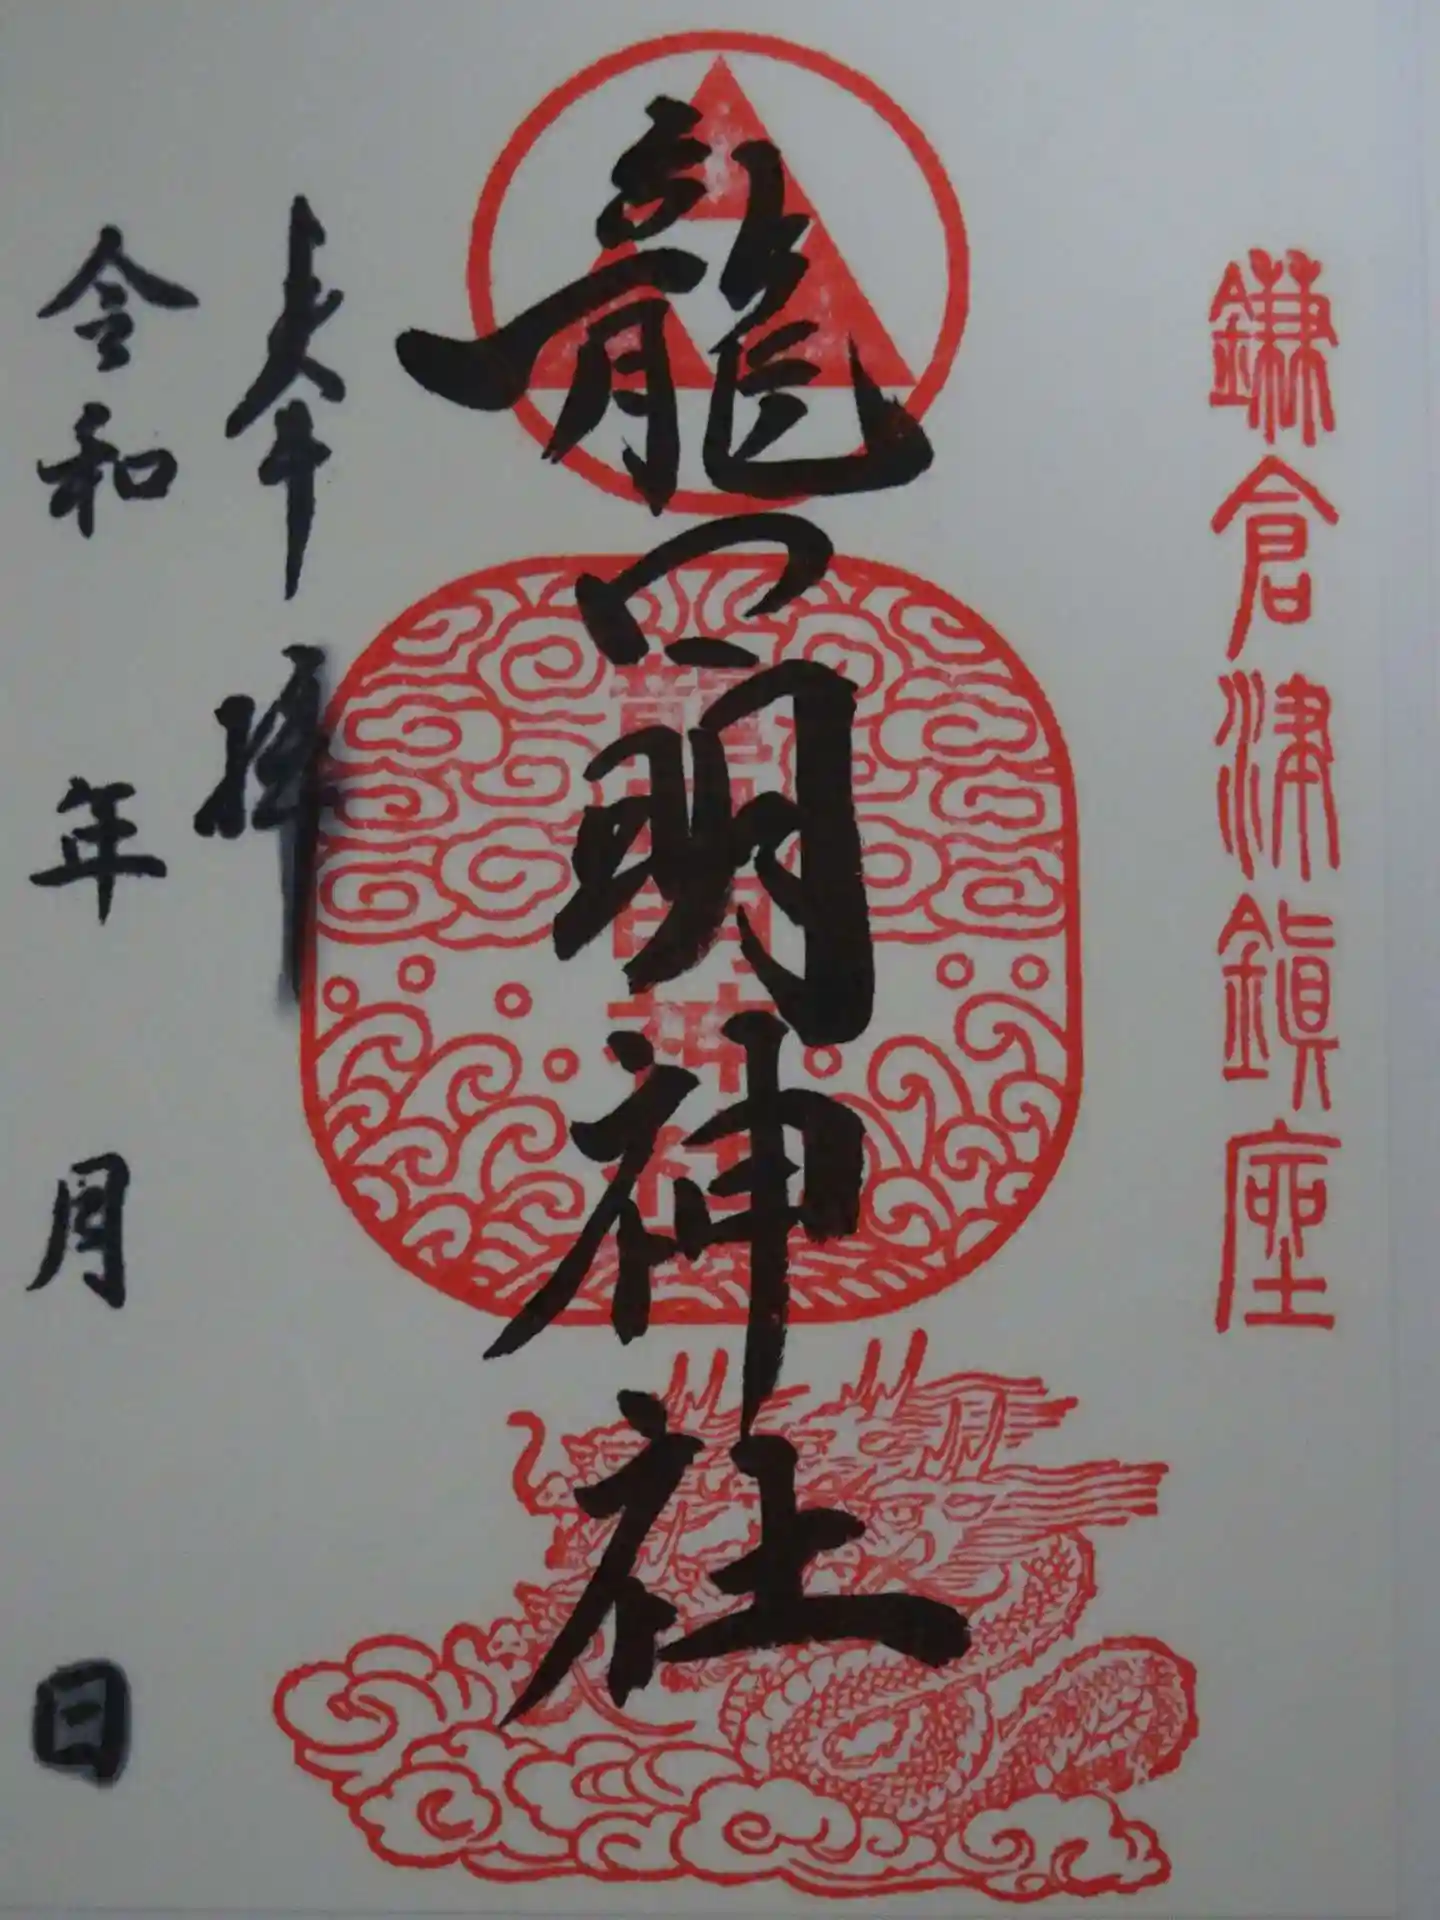 鎌倉津鎮座
龍口明神社
奉拝
令和 年 月 日